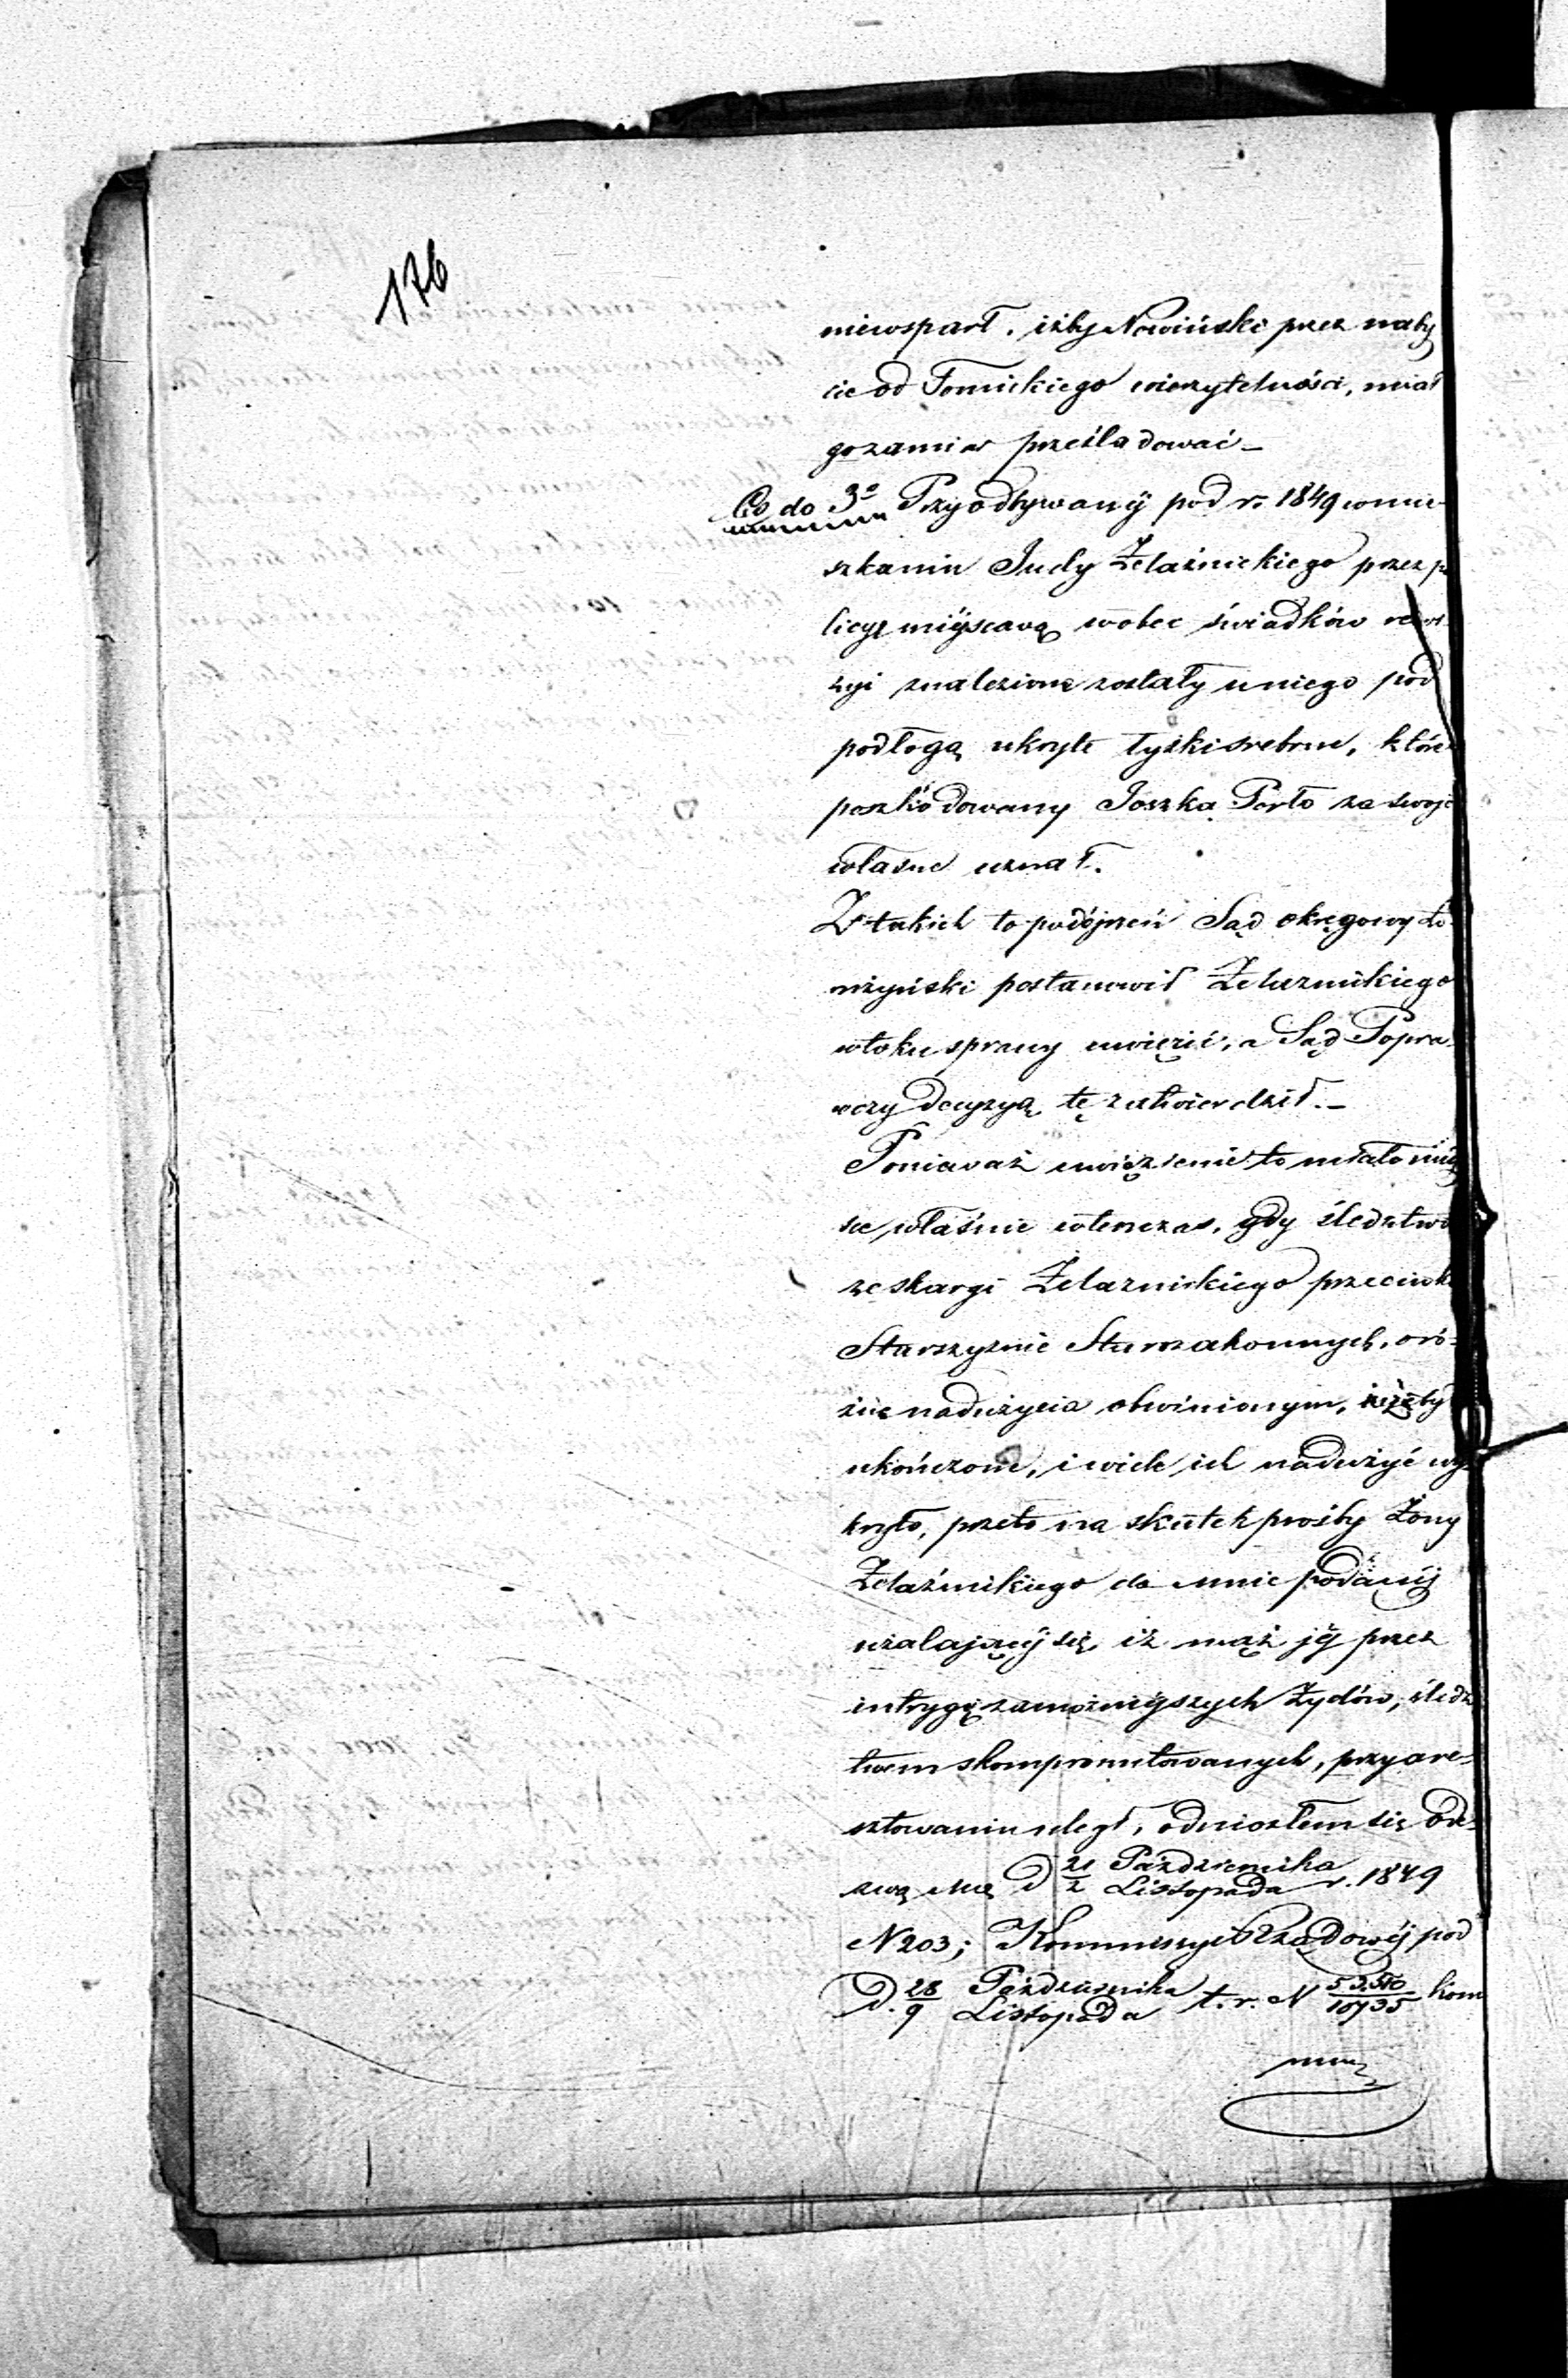 176
niewsparł. iżby Nowiński przez naby
cie od Tomickiego wierzytelności, miał
go zamiar prześladować –
Co do 3º Przy odbywanÿ pod r. 1849 w mie-
szkaniu Judy Żelaźnickiego przez po
licyę mÿscową wobec świadków rewi-
zyi znalezione zostały u niego pod
podłogą ukryte łyżki srebrne, które
poszkodowany Joszka Perło za swoje
własne uznał.
Z takich to podójrzeń Sąd okręgowy Ło-
mżyński postanowił Żelaznickiego
w toku sprawy uwięzić, a Sąd Popra-
wczy decyzyą tę zatwierdził. –
Ponieważ uwięzienie to miało miej
sce właśnie wtenczas, gdy śledztwo
ze skargi Żelaznickiego przeciwko
Starszyznie Starozakonnych, o ró-
żne nadużycia obwinionym,
ukończone, i wiele ich nadużyć wy-
kryto, przeto na skutek prośby Żony
Żelaźnickiego do mnie podanÿ
użalającÿ się, iż mąż jÿ przez
intrygę zamożnÿszych Żydów, śledz
twem skompromitowanych, przyare-
sztowaniu uległ, odniosłem się Ode-
zwą mą D 21/2 Października/Listopada r. 1849
N 203; Kommissyi Rządowéj pod
D. 28/9 Października/Listopada t. r. N kom